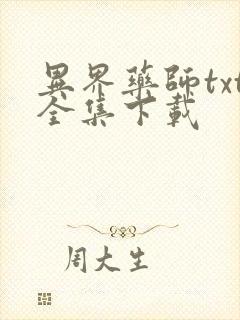 異界藥師txt
全集下載
周大生